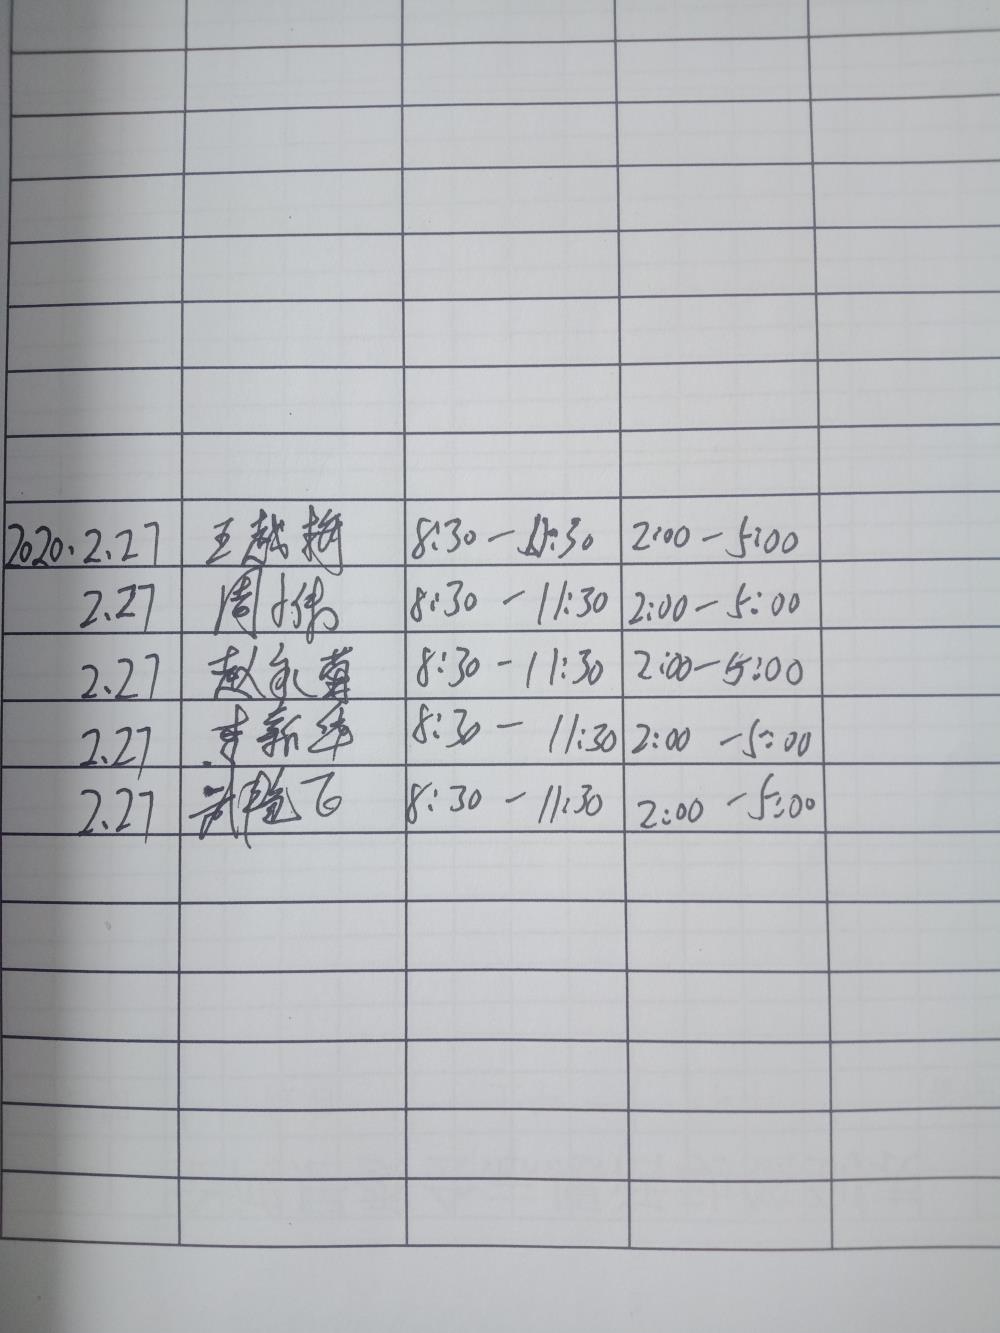 2020.2.27 王越 8:30-11:30 2:00-5:00
2.27 周小伟 8:30-11:30 2:00-5:00
2.27 赵 8:30-11:30 2:00-5:00
2.27 李新华 8:30-11:30 2:00-5:00
2.27 飞 8:30-11:30 2:00-5:00